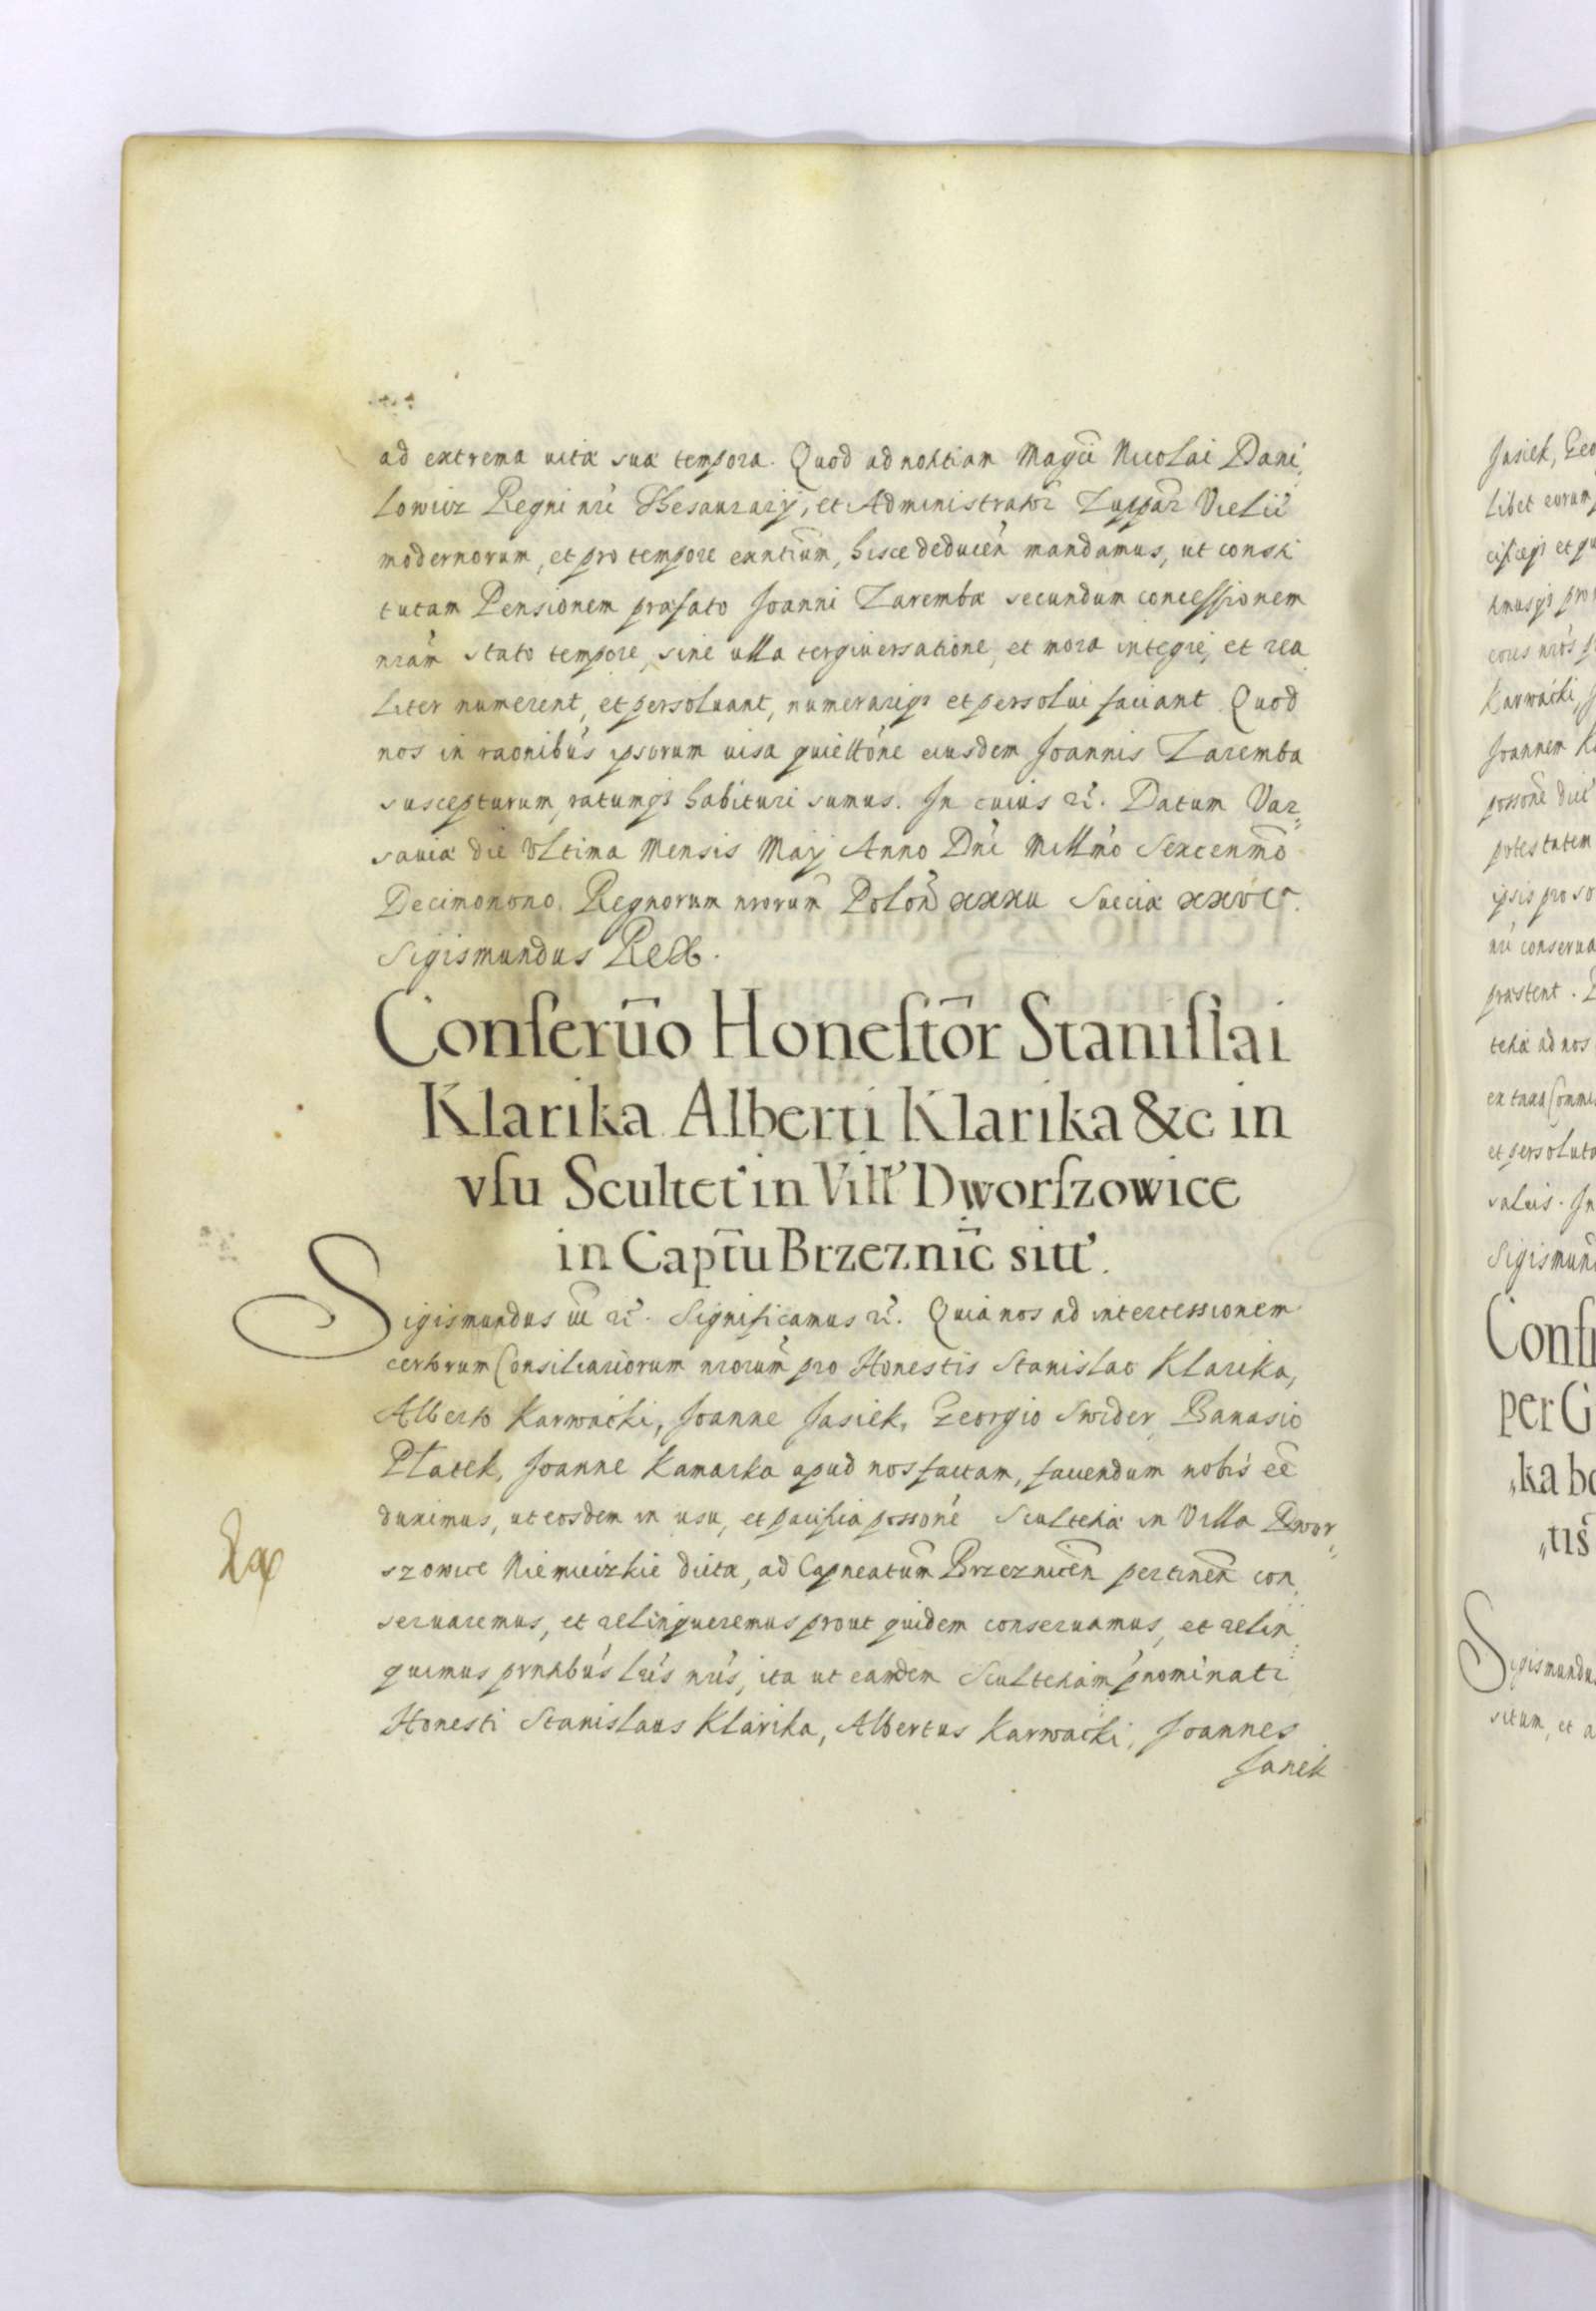 ad extrema uitæ suæ tempora. Quod ad notitiam Magci Nicolai Dani,
lowicz Regni nri Thesaurarij, et Administrator Zuppar Vielic
modernorum, et pro tempore exntium, hisce deducen mandamus, ut consti
tutam Pensionem præfato Joanni Zaremba secundum concessionem
nram stato tempore, sine ulla tergiuersatione, et mora integre, et rea
liter numerent, et persoluant, numerarique et persolui faciant. Quod
nos in raonibus ipsorum uisa quiettone eiusdem Joannis Zaremba
suscepturum, ratumque habituri sumus. In cuius rei. Datum Var=
sauiæ die Vltima Mensis Maij Anno Dni Millmo Sexcenmo
Decimonono. Regnorum nrorum Polon xxxii Sueciæ xxvi.
Sigismundus Rex.
Conseruo Honestor Stanislai
Klarika Alberti Klarika &c in
vsu Scultet in Vill Dworszowice
in Captu Brzeznic sitt.
Sigismundus iii rc. Significamus rc. Quia nos ad intercessionem
certorum Consiliariorum nrorum pro Honestis Stanislao Klarika,
Alberto Karwacki, Joanne Jasiek, Georgio Swider, Banasio
Placek, Joanne Kamarka apud nos factam, fauendum nobis ee
duximus, ut eosdem in usu, et pacifica possone Scultetiæ in Villa Dwor=
szowice Niemieizkie dicta, ad Capneatum Brzeznicen pertinen con
seruaremus, et relinqueremus prout quidem conseruamus, et relin
quimus prntibus lris nris, ita ut eandem Scultetiam pnominati
Honesti Stanislaus Klarika, Albertus Karwacki, Joannes
Jasiek
Jasiek, Geo
libet eorum
Karwacki, J
Joannem K
possone dict
potestatem
ipsis pro so
nri conserua
præstent.
tetiæ ad nos
et persoluta
saluis. In
Sigismun
Conse
per G
,ka bo
„tis
Sigismundu
situm, et a